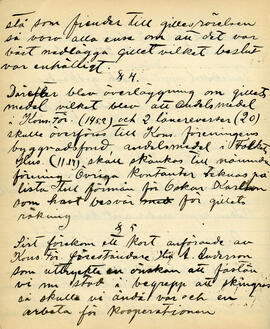 stå som fiender till gillesrörelsen
så voro alla ense om att det var
bäst nedlägga gillet vilket beslut
var enhälligt.
§ 4.
Därefter blev överläggning om gillets
medel vilket blev att Andelsmedel
i Kons. För. (1452) och 2 lånerevers (20)
skulle överföras till Kons. föreningens
byggnadsfond andelsmedel i Folkets
Hus (11.19) skall skänkas till nämnda
förening. Övriga kontanter teknas på
lista till förmån för Oskar Karlsson
som hast besvär för gillets
räkning
§ 5
Sist förekom ett kort anförande av
Kons För föreståndare A. Anderson
som uttryckte en önskan att fastän
vi nu stod i begrepp att skingras
så skulle vi ändå var och en
arbeta för kooperationen